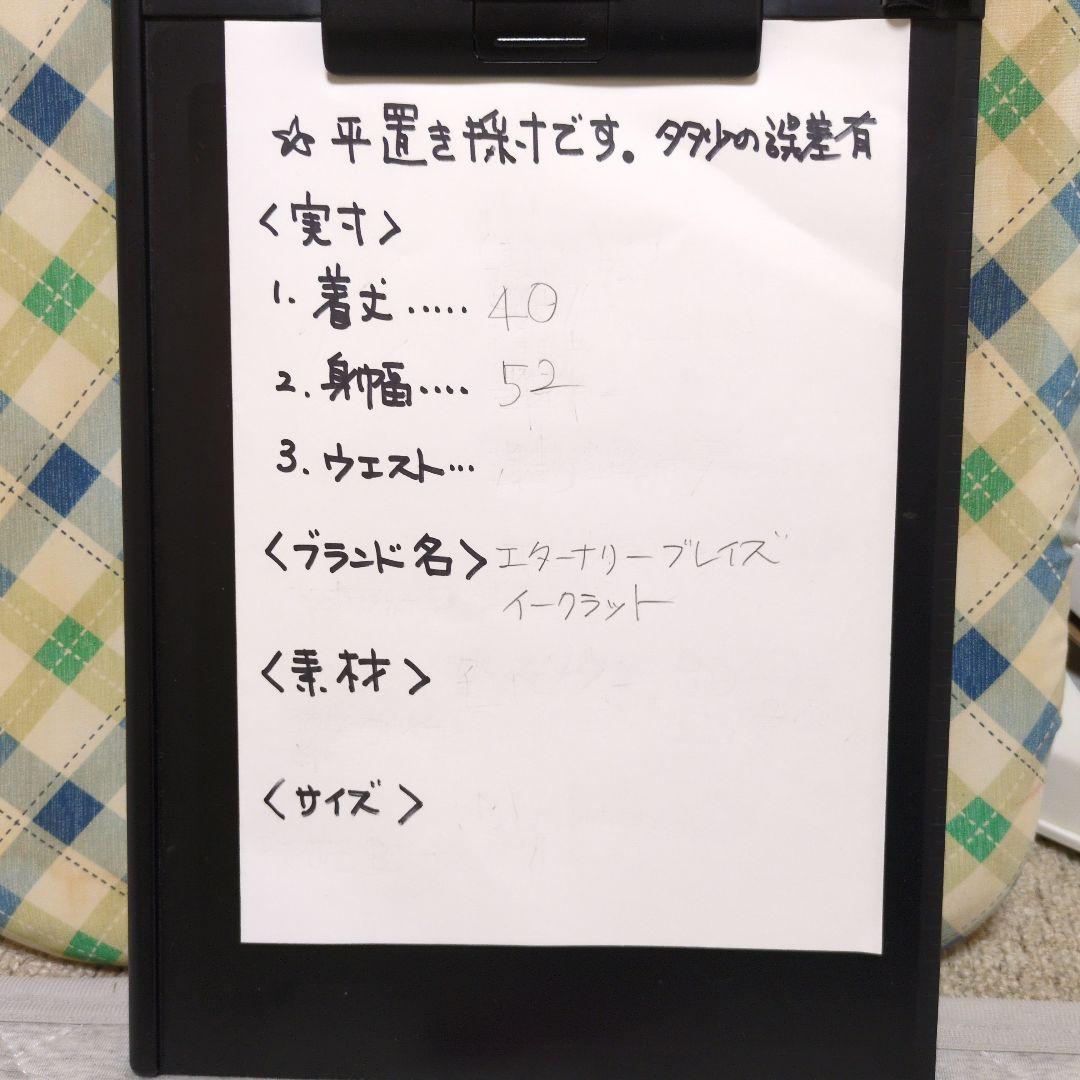 ☆平置き採寸です。多少の誤差有
〈実寸〉
1. 着丈‥‥‥ 40
2. 身幅‥‥ 52
3. ウエスト…
〈ブランド名〉エターナリーブレイズ
イークラット
〈素材〉
〈サイズ〉